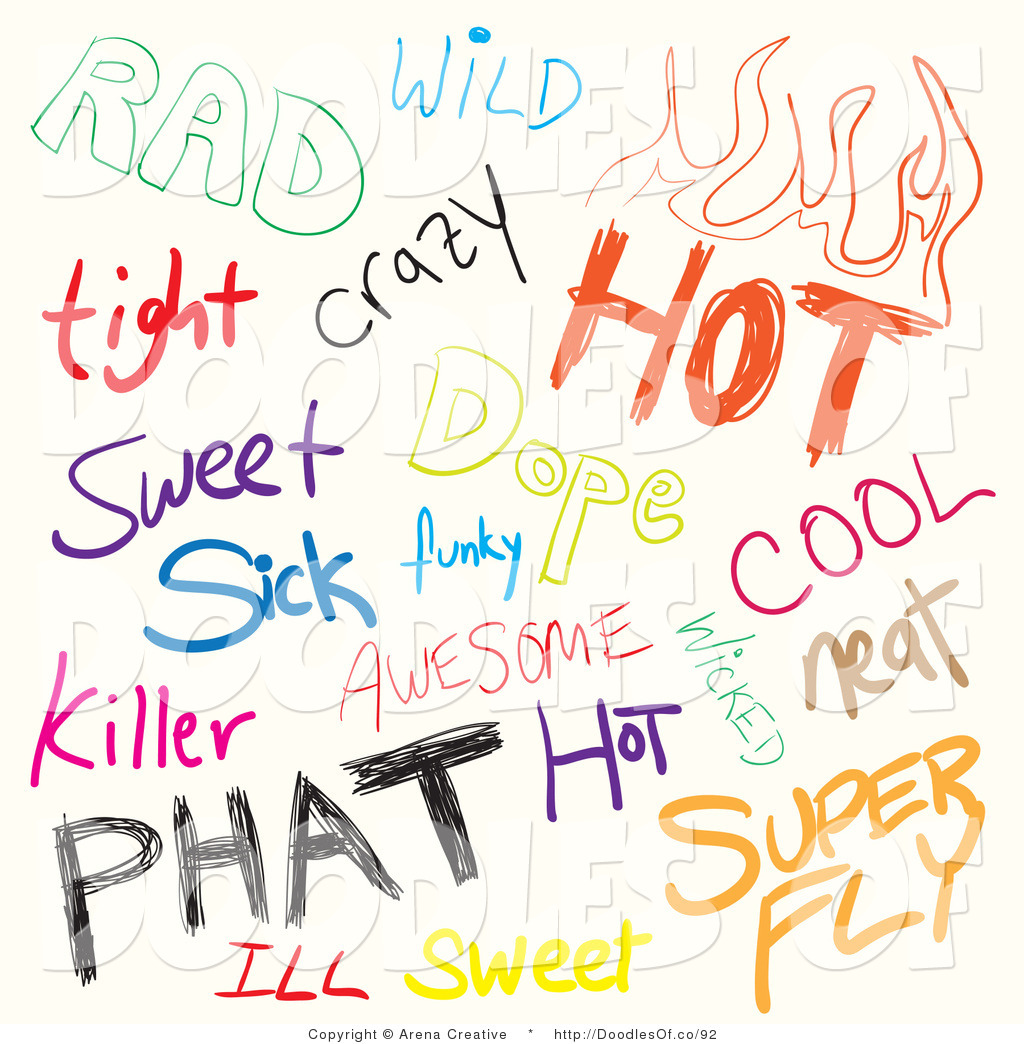 RAD
WiLD
crazy
tight
HOT
Dope
Sweet
COOL
Sick
funky
AWESOME
WicKED
neat
Killer
HOT
PHAT
SUPER
FLY
ILL
Sweet
DOODLES OF
DOODLES OF
DOODLES OF
DOODLES OF
Copyright © Arena Creative * http://DoodlesOf.co/92